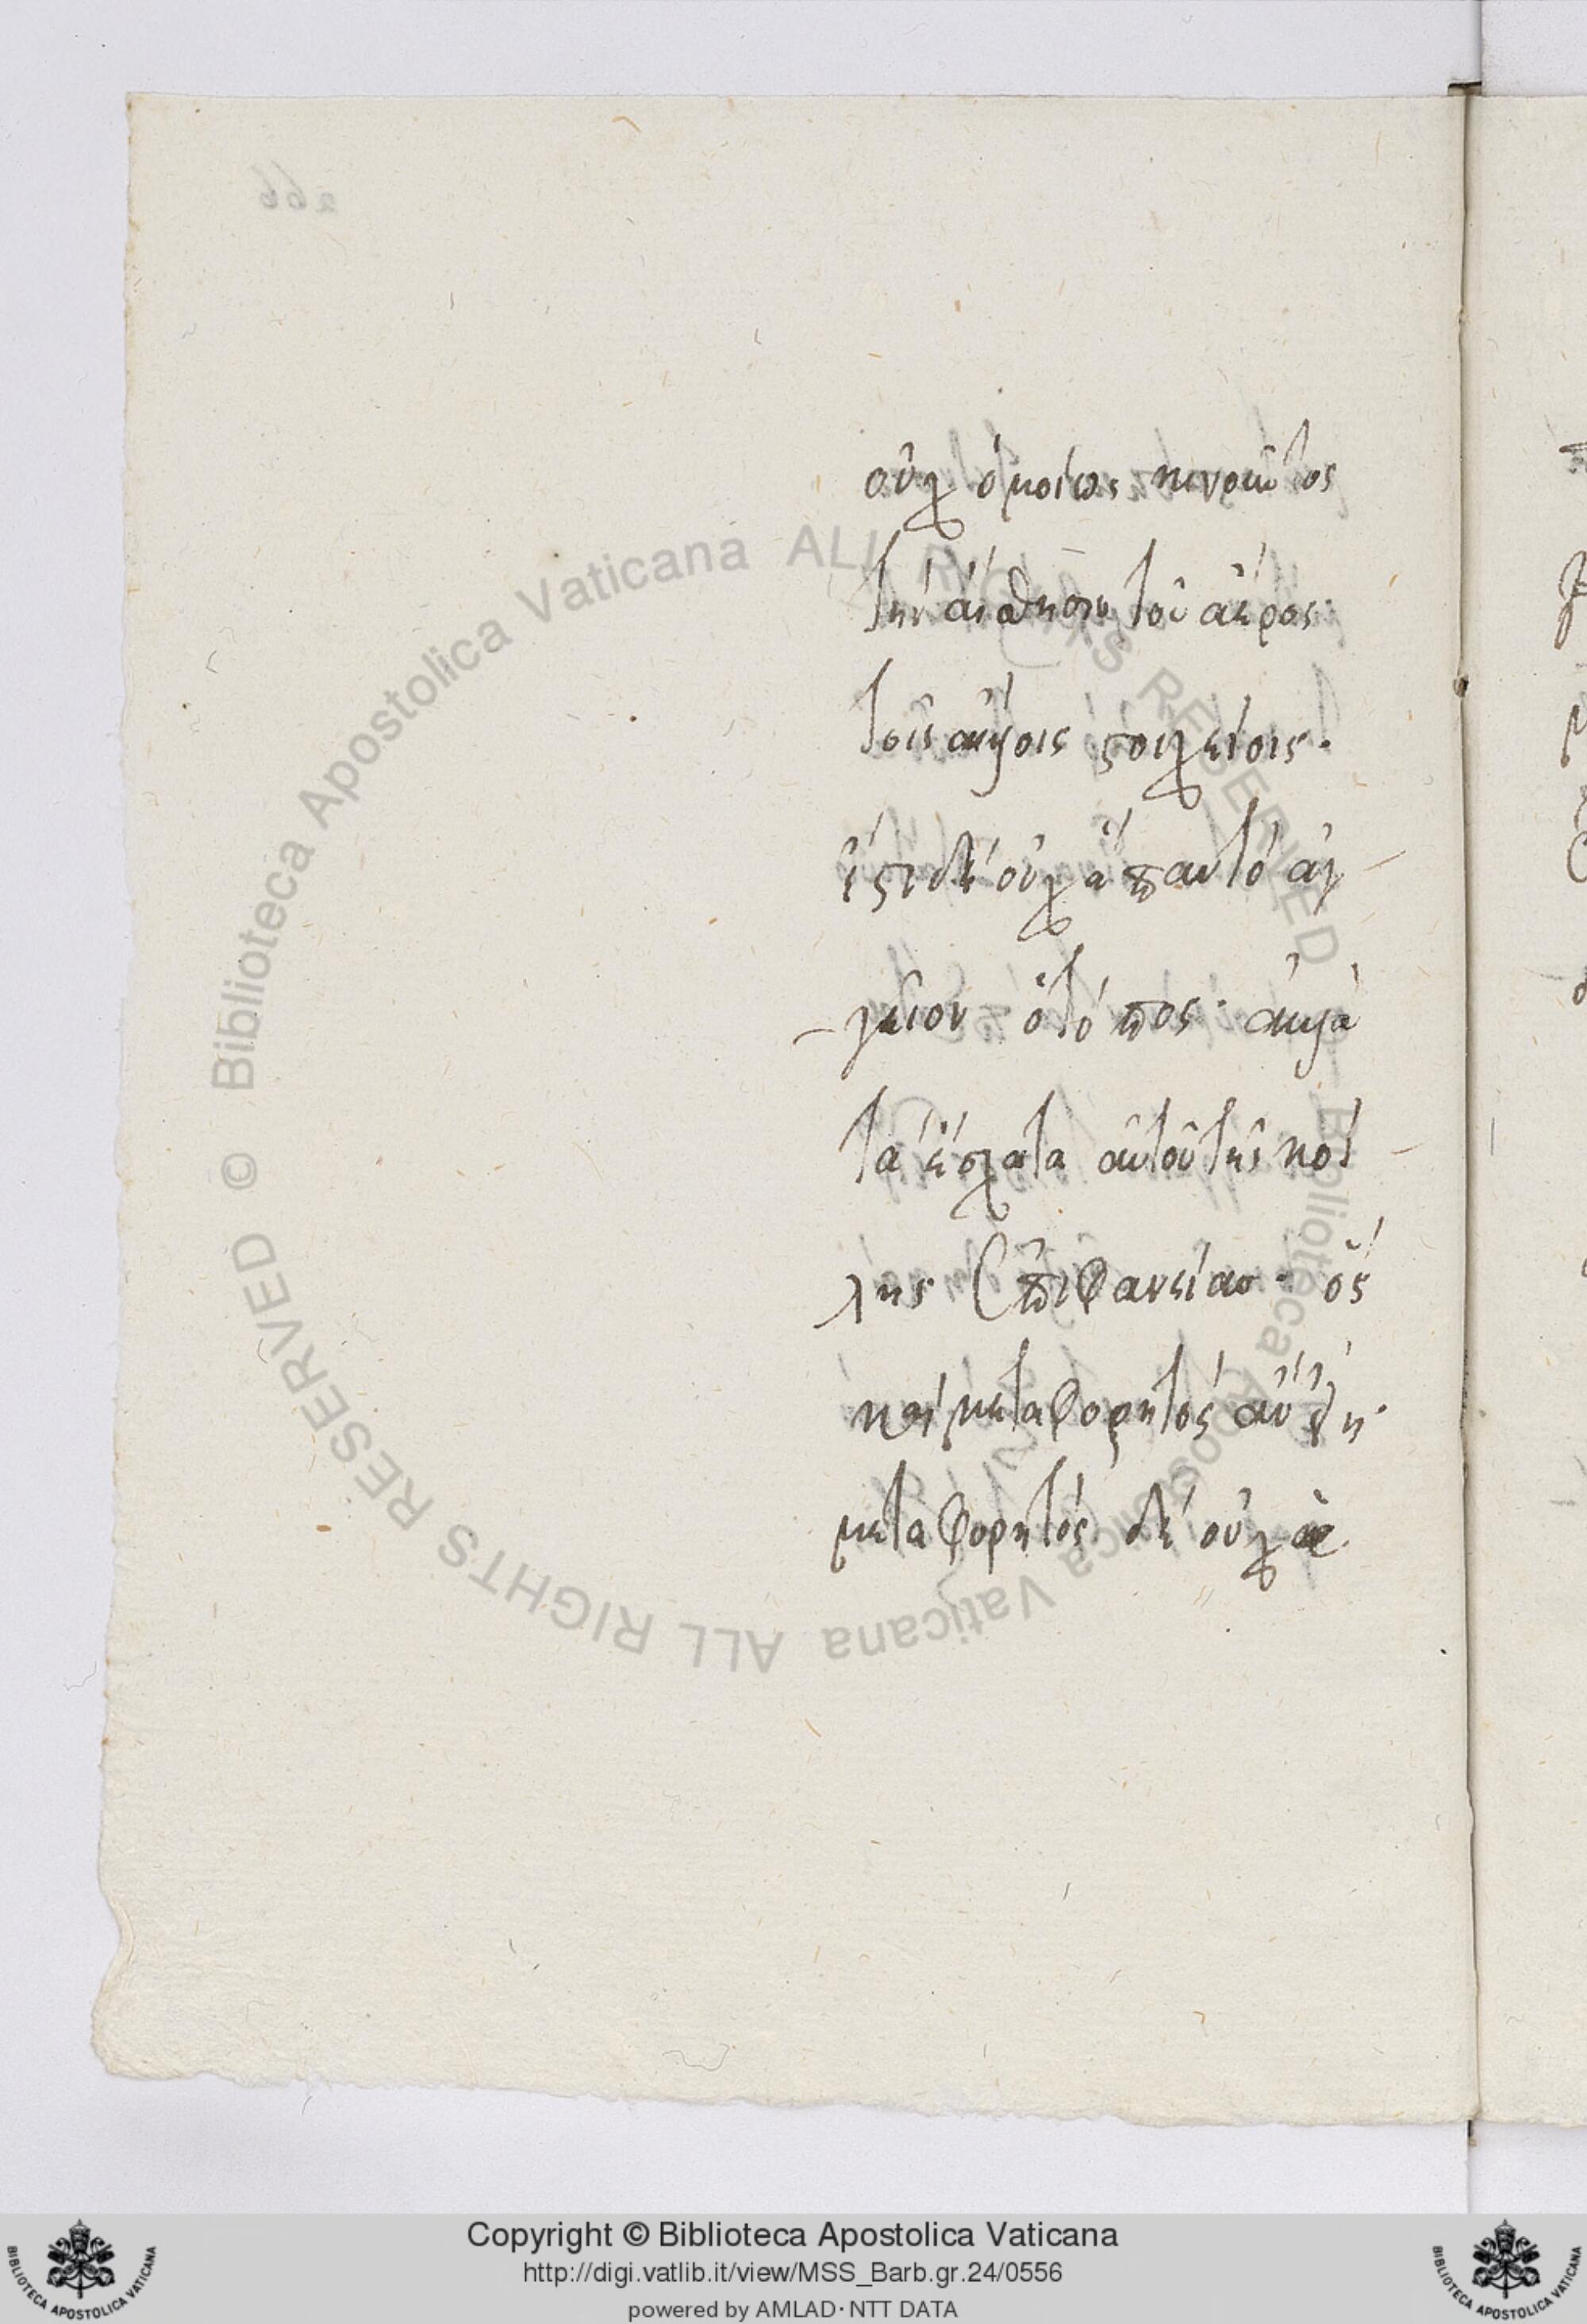 οὐχ ὁμοίως κινοῦντος
τὴν αἴσθησιν τοῦ ἀέρος
τοῖς ἄλλοις στοιχείοις·
ἔστι δὲ οὐχ ἅπαν τὸ ἀγ
γεῖον ὁ τόπος· ἀλλὰ
τὰ ἔσχατα αὐτοῦ τῆς κοί
λης ἐπιφανείας· ὃς
καὶ μεταφορητὸς
μεταφορητὸς δὲ οὐχ
Biblioteca Apostolica Vaticana ALL RIGHTS RESERVED
© Biblioteca Apostolica Vaticana ALL RIGHTS RESERVED
Copyright © Biblioteca Apostolica Vaticana
http://digi.vatlib.it/view/MSS_Barb.gr.24/0556
powered by AMLAD · NTT DATA
BIBLIOTECA APOSTOLICA VATICANA
BIBLIOTECA APOSTOLICA VATICANA